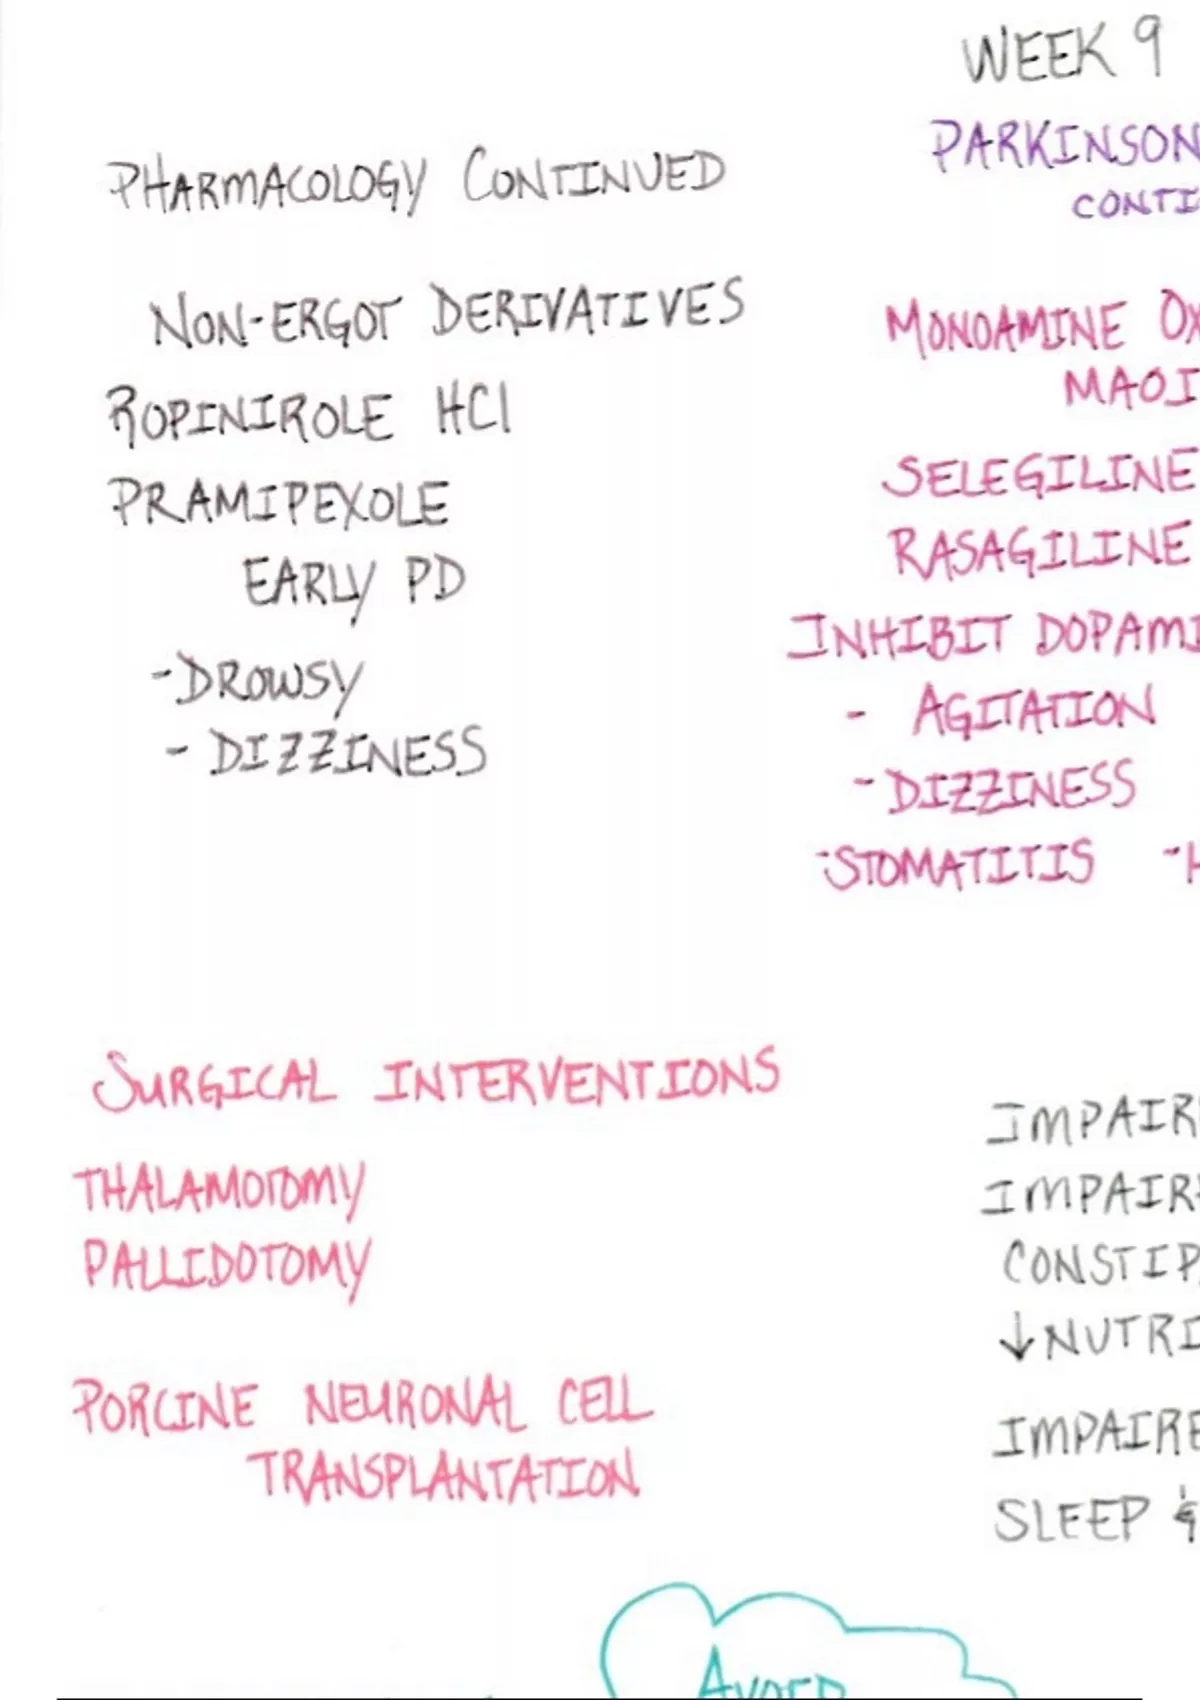 WEEK 9
PARKINSON
CONTI
PHARMACOLOGY CONTINUED
NON-ERGOT DERIVATIVES
ROPINIROLE HCl
PRAMIPEXOLE
EARLY PD
-DROWSY
- DIZZINESS
MONOAMINE OX
MAOI
SELEGILINE
RASAGILINE
INHIBIT DOPAMI
- AGITATION
-DIZZINESS
-STOMATITIS -H
SURGICAL INTERVENTIONS
THALAMOTOMY
PALLIDOTOMY
PORCINE NEURONAL CELL
TRANSPLANTATION
IMPAIR
IMPAIR
CONSTIP
↓NUTRI
IMPAIRE
SLEEP &
AVOID